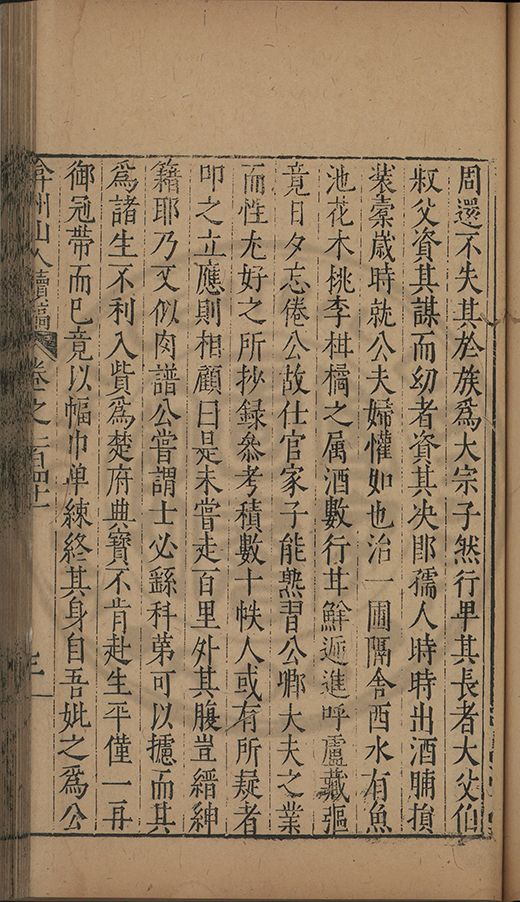 周還不失其於族為大宗子然行卑其長者大父伯
叔父資其謀而幼者資其决即孺人時時出酒脯損
裝橐歲時就公夫婦懽如也治一圃隔舍西水有魚
池花木桃李柑橘之属酒數行甘鮮遞進呼盧藏彄
竟日夕忘倦公故仕宦家子能熟習公卿大夫之業
而性尤好之所抄録叅考積數十帙人或有所疑者
叩之立應則相顧曰是未嘗走百里外其腹豈縉紳
籍耶乃又似肉譜公嘗謂士必繇科第可以攄而其
為諸生不利入貲為楚府典寶不肯赴生平僅一再
御冠帶而已竟以幅巾单練終其身自吾妣之為公
弇州山人續稿 卷之一百四十